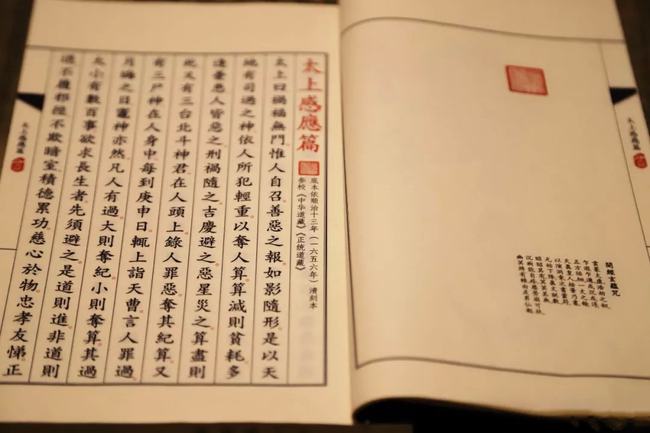 開經玄蘊咒
太上感應篇
底本依順治十三年(一六五六年)清刻本
參校《中华道藏》《正统道藏》
太上曰禍福無門惟人自召善惡之報如影隨形是以天
地有司過之神依人所犯輕重以奪人算算減則貧耗多
逢憂患人皆惡之刑禍隨之吉慶避之惡星災之算盡則
死又有三台北斗神君在人頭上錄人罪惡奪其紀算又
有三尸神在人身中每到庚申日輒上詣天曹言人罪過
月晦之日竈神亦然凡人有過大則奪紀小則奪算其過
大小有數百事欲求長生者先須避之是道則進非道則
退不履邪徑不欺暗室積德累功慈心於物忠孝友悌正
太上感應篇